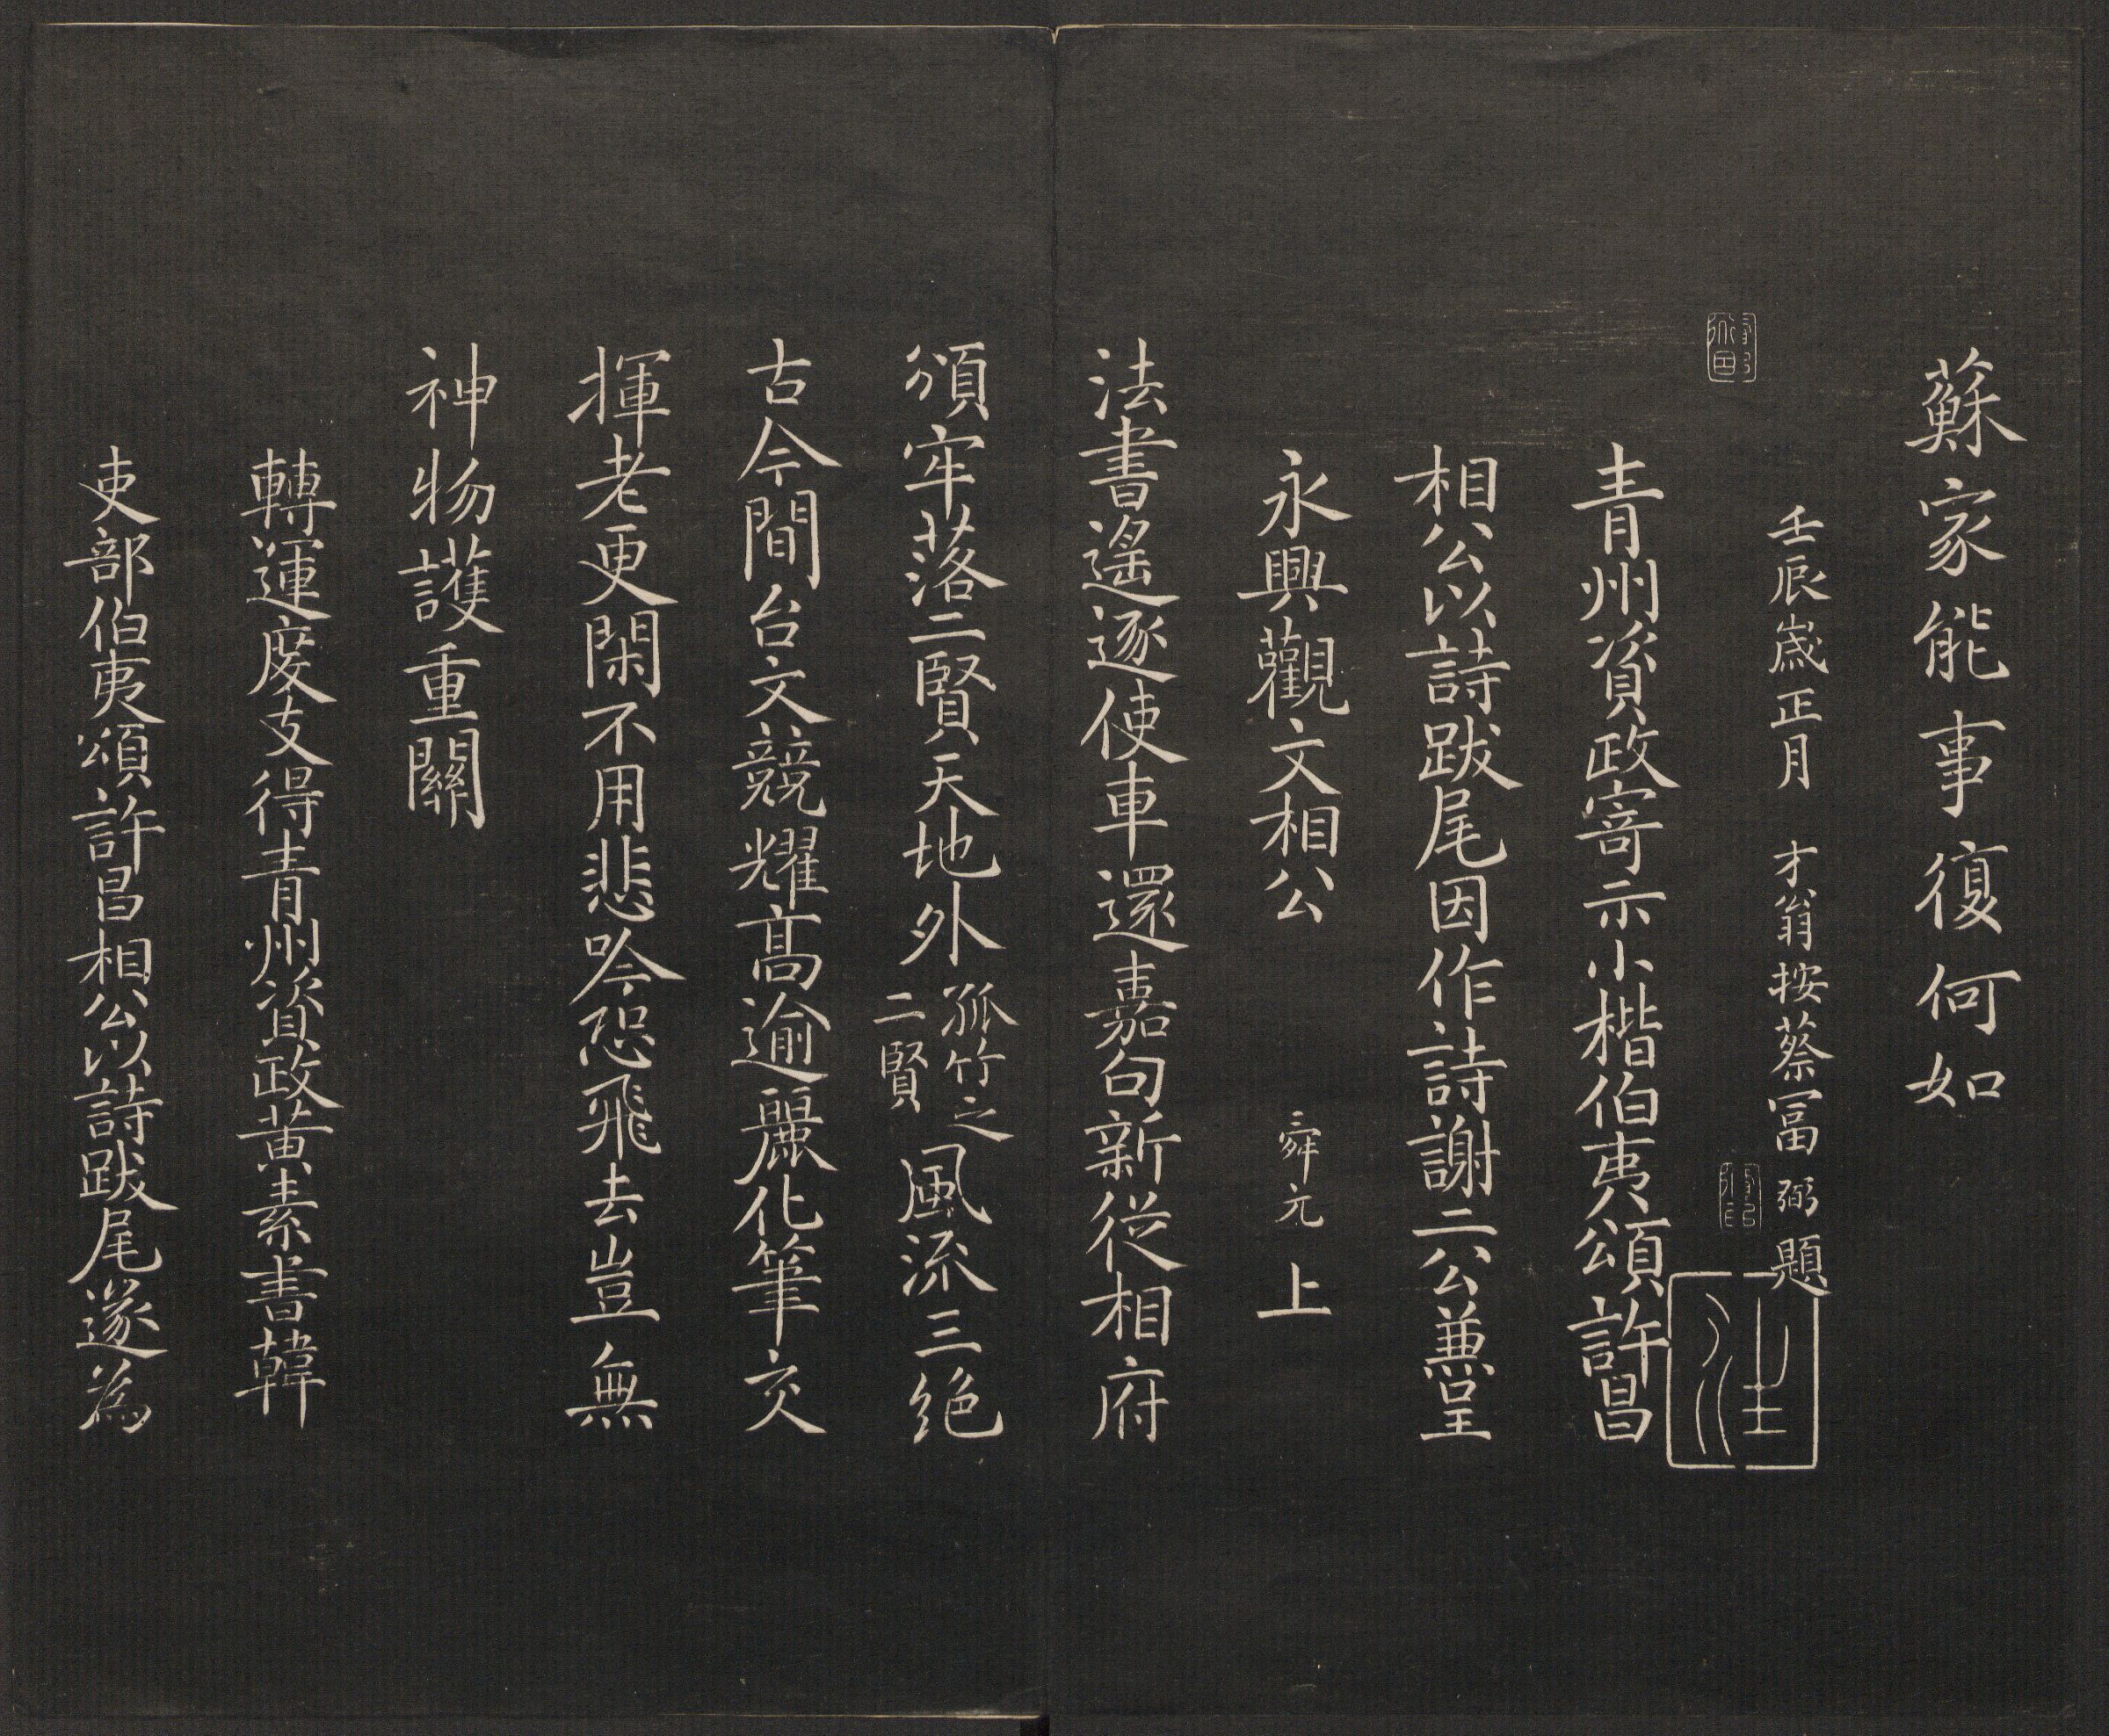 蘇家能事復何如
壬辰歲正月 才翁按蔡冨弼題
青州資政寄示小楷伯夷頌許昌
相公以詩跋尾因作詩謝二公兼呈
永興觀文相公 舜元上
法書遙逐使車還嘉句新從相府
頒牢落二賢天地外孤竹之二賢風流三絕
古今間台文競耀高逾麗化筆交
揮老更閑不用悲吟恐飛去豈無
神物護重關
轉運度支得青州資政黃素書韓
吏部伯夷頌許昌相公以詩跋尾遂為